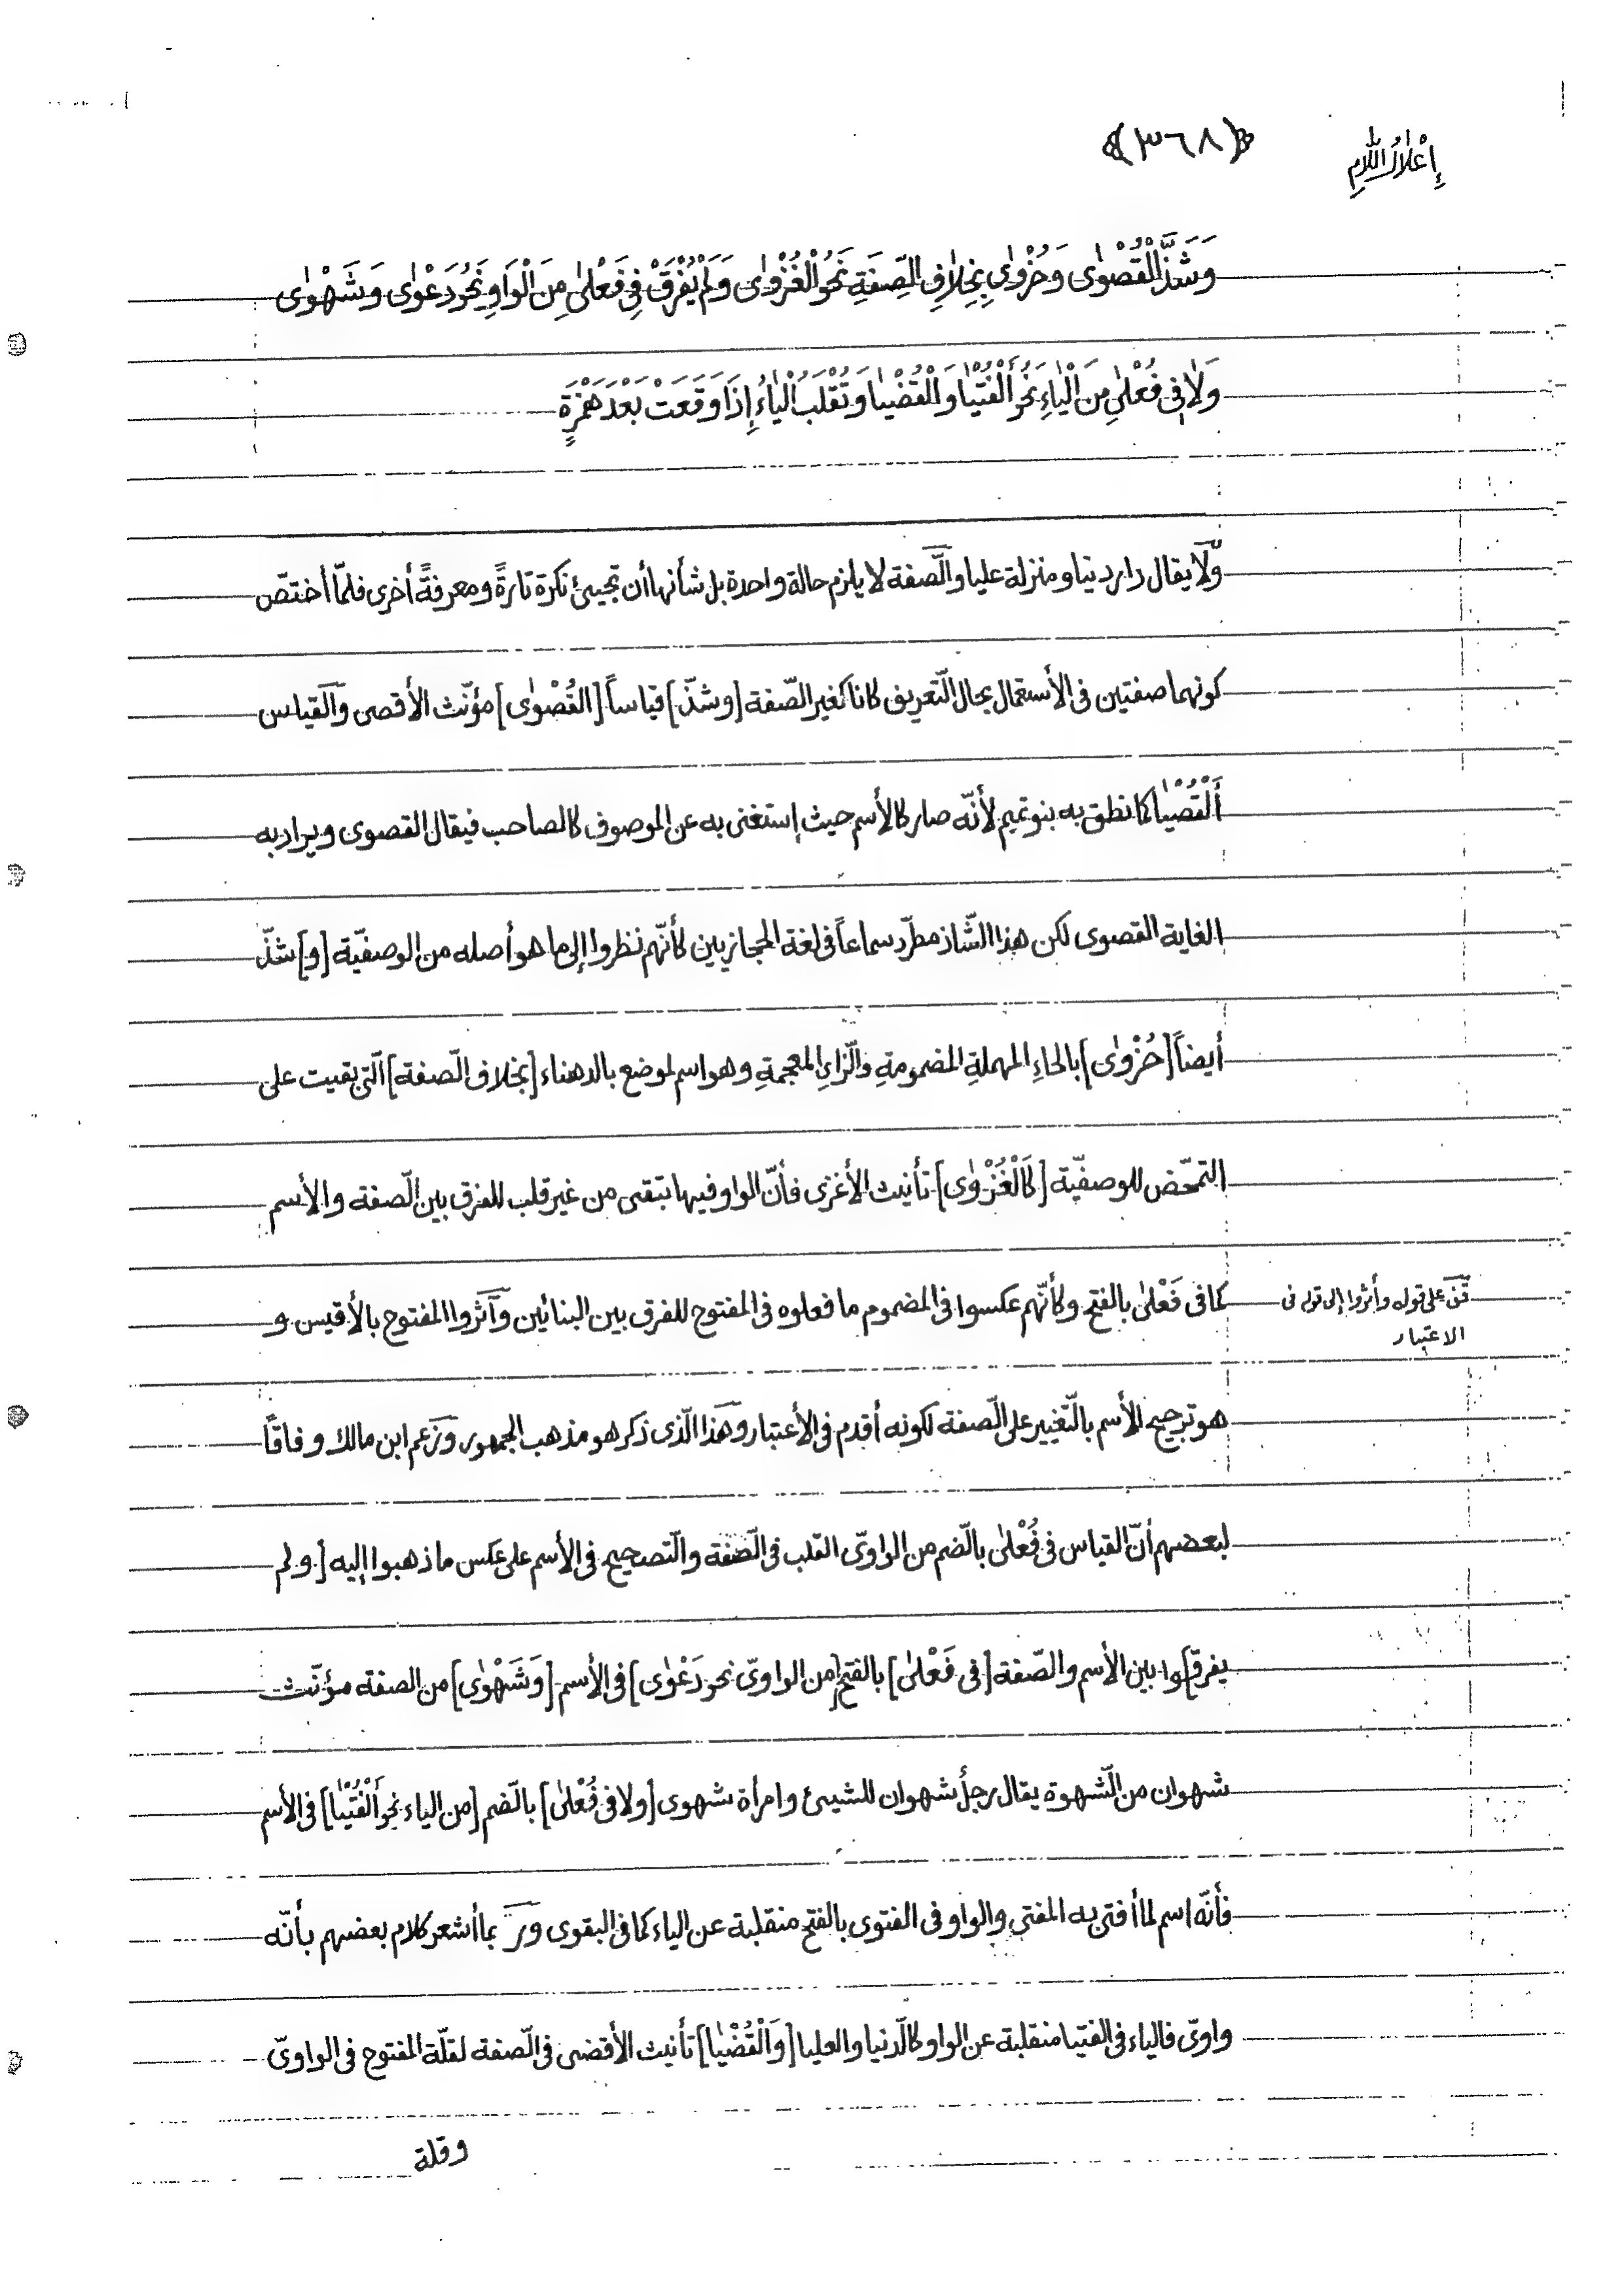 إِعْلَالُ اللَّامِ
﴿٣٦٨﴾
وَشَذَّ الْقُصْوٰى وَحُزْوٰى بِخِلَافِ الصِّفَةِ نَحْوُ الْغُزْوٰى وَلَمْ يُفْرَقْ فِي فَعْلٰى مِنَ الْوَاوِ نَحْوُ دَعْوٰى وَشَهْوٰى
وَلَا فِي فُعْلٰى مِنَ الْيَاءِ نَحْوُ أَلْفُتْيَا وَالْقُضْيَا وَتُقْلَبُ الْيَاءُ إِذَا وَقَعَتْ بَعْدَ هَمْزَةٍ
ولا يقال دار دنيا ومنزلة عليا والصّفة لا يلزم حالة واحدة بل شأنها أن تجيئ نكرة تارةً ومعرفةً أخرى فلمّا أختصّ
كونهما صفتين في الأستعمال بحال التّعريف كانا كغير الصّفة [وشذّ] قياساً [القُصْوٰى] مؤنّث الأقصى والقياس
أَلْقُصْيَا كما نطق به بنو تميم لأنّه صار كالأسم حيث إستغنى به عن الموصوف كالصاحب فيقال القصوى ويراد به
الغاية القصوى لكن هذا الشّاذ مطرّد سماعاً في لغة الحجازيين كأنّهم نظروا إلى ما هو أصله من الوصفيّة [و] شذّ
أيضاً [حُزْوٰى] بالحاءِ المهملةِ المضمومةِ والزّاءِ المعجمةِ وهو اسم لموضع بالدهناء [بخلاف الصّفة] الّتى بقيت على
التمحّض للوصفيّة [كَالْغُزْوٰى] تأنيث الأغزى فأنّ الواو فيها تبقى من غير قلب للفرق بين الصّفة والأسم
كما في فَعْلٰى بالفتح وكأنّهم عكسوا في المضموم ما فعلوه في المفتوح للفرق بين البنائين وآثروا المفتوح بالأقيس و
على قوله وأثروا إلى قوله في
الاعتبار
هو ترجيح الأسم بالتّغيير على الصّفة لكونه أقدم في الأعتبار وهذا الّذى ذكر هو مذهب الجمهور وزعم ابن مالك وفاقًا
لبعضهم أنّ القياس في فُعْلٰى بالضّم من الواوىّ القلب في الصّفة والتّصحيح في الأسم على عكس ما ذهبوا إليه [ولم
يفرق]وا بين الأسم والصّفة [في فَعْلٰى] بالفتح [من الواوىّ نحو دَعْوٰى] في الأسم [وَشَهْوٰى] من الصفة مؤنّث
شهوان من الشّهوة يقال رجلٌ شهوان للشيئ وامرأة شهوى [ولا في فُعْلٰى] بالضّم [من الياء نحو أَلْفُتْيَا] في الأسم
فأنّه اسم لما أفتى به المفتى والواو في الفتوى بالفتح منقلبة عن الياء كما في البقوى وربّما أشعر كلام بعضهم بأنّه
واوىّ فالياء في الفتيا منقلبة عن الواو كالدّنيا والعليا [وَالْقُضْيَا] تأنيث الأقضى في الصّفة لقلّة المفتوح في الواوىّ
وقلة